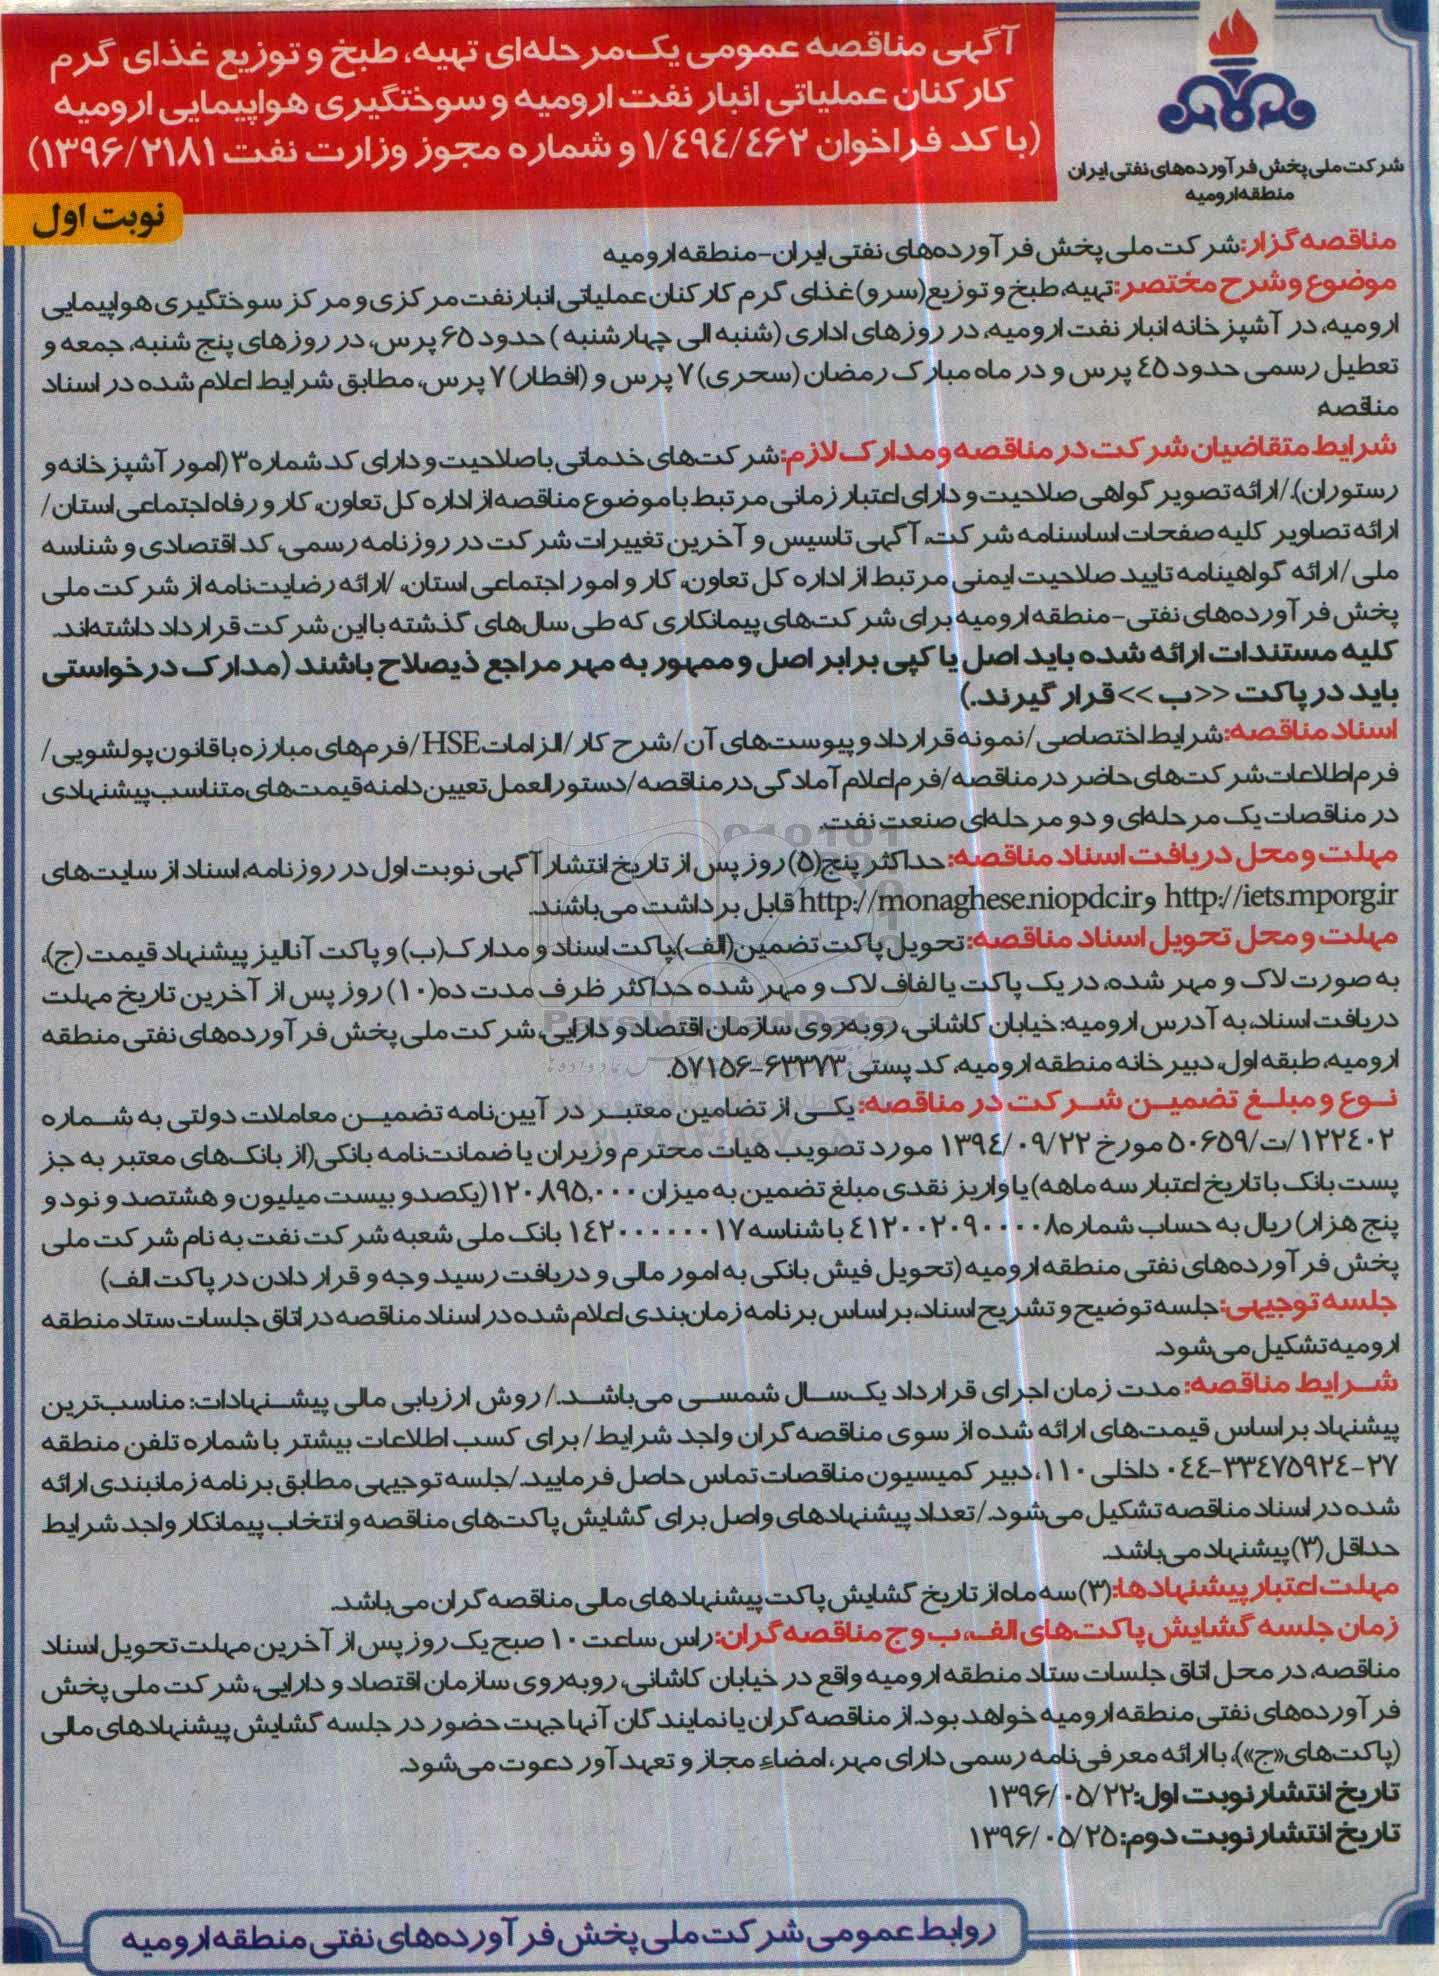 آگهی مناقصه عمومی یک‌مرحله‌ای تهیه، طبخ و توزیع غذای گرم
کارکنان عملیاتی انبار نفت ارومیه و سوختگیری هواپیمایی ارومیه
(با کد فراخوان ۱/۴۹۴/۴۶۲ و شماره مجوز وزارت نفت ۱۳۹۶/۲۱۸۱)
شرکت ملی پخش فرآورده‌های نفتی ایران
منطقه ارومیه
نوبت اول
مناقصه گزار: شرکت ملی پخش فرآورده‌های نفتی ایران-منطقه ارومیه
موضوع و شرح مختصر: تهیه، طبخ و توزیع(سرو) غذای گرم کارکنان عملیاتی انبار نفت مرکزی و مرکز سوختگیری هواپیمایی
ارومیه، در آشپزخانه انبار نفت ارومیه، در روزهای اداری (شنبه الی چهارشنبه) حدود ۶۵ پرس، در روزهای پنج شنبه، جمعه و
تعطیل رسمی حدود ۴۵ پرس و در ماه مبارک رمضان (سحری) ۷ پرس و (افطار) ۷ پرس، مطابق شرایط اعلام شده در اسناد
مناقصه
شرایط متقاضیان شرکت در مناقصه و مدارک لازم: شرکت‌های خدماتی با صلاحیت و دارای کد شماره ۳ (امور آشپزخانه و
رستوران)./ارائه تصویر گواهی صلاحیت و دارای اعتبار زمانی مرتبط با موضوع مناقصه از اداره کل تعاون، کار و رفاه اجتماعی استان/
ارائه تصاویر کلیه صفحات اساسنامه شرکت، آگهی تاسیس و آخرین تغییرات شرکت در روزنامه رسمی، کد اقتصادی و شناسه
ملی/ارائه گواهینامه تایید صلاحیت ایمنی مرتبط از اداره کل تعاون، کار و امور اجتماعی استان، /ارائه رضایت‌نامه از شرکت ملی
پخش فرآورده‌های نفتی-منطقه ارومیه برای شرکت‌های پیمانکاری که طی سال‌های گذشته با این شرکت قرارداد داشته‌اند.
کلیه مستندات ارائه شده باید اصل یا کپی برابر اصل و ممهور به مهر مراجع ذیصلاح باشند (مدارک درخواستی
باید در پاکت <<ب>> قرار گیرند.)
اسناد مناقصه: شرایط اختصاصی/نمونه قرارداد و پیوست‌های آن/شرح کار/الزامات HSE/فرم‌های مبارزه با قانون پولشویی/
فرم اطلاعات شرکت‌های حاضر در مناقصه/فرم اعلام آمادگی در مناقصه/دستورالعمل تعیین دامنه قیمت‌های متناسب پیشنهادی
در مناقصات یک مرحله‌ای و دو مرحله‌ای صنعت نفت.
مهلت و محل دریافت اسناد مناقصه: حداکثر پنج(۵) روز پس از تاریخ انتشار آگهی نوبت اول در روزنامه، اسناد از سایت‌های
http://iets.mporg.ir و http://monaghese.niopdc.ir قابل برداشت می‌باشند.
مهلت و محل تحویل اسناد مناقصه: تحویل پاکت تضمین(الف)، پاکت اسناد و مدارک(ب) و پاکت آنالیز پیشنهاد قیمت (ج)،
به صورت لاک و مهر شده، در یک پاکت یا لفاف لاک و مهر شده حداکثر ظرف مدت ده(۱۰) روز پس از آخرین تاریخ مهلت
دریافت اسناد، به آدرس ارومیه: خیابان کاشانی، روبه‌روی سازمان اقتصاد و دارایی، شرکت ملی پخش فرآورده‌های نفتی منطقه
ارومیه، طبقه اول، دبیرخانه منطقه ارومیه، کد پستی ۶۳۳۷۳-۵۷۱۵۶.
نوع و مبلغ تضمین شرکت در مناقصه: یکی از تضامین معتبر در آیین‌نامه تضمین معاملات دولتی به شماره
۱۲۲۴۰۲/ت/۵۰۶۵۹ مورخ ۱۳۹۴/۰۹/۲۲ مورد تصویب هیات محترم وزیران یا ضمانت‌نامه بانکی(از بانک‌های معتبر به جز
پست بانک با تاریخ اعتبار سه ماهه) یا واریز نقدی مبلغ تضمین به میزان ۱۲۰،۸۹۵،۰۰۰ (یکصد و بیست میلیون و هشتصد و نود و
پنج هزار) ریال به حساب شماره ۴۱۲۰۰۲۰۹۰۰۰۰۸ با شناسه ۱۴۲۰۰۰۰۰۰۰۱۷ بانک ملی شعبه شرکت نفت به نام شرکت ملی
پخش فرآورده‌های نفتی منطقه ارومیه (تحویل فیش بانکی به امور مالی و دریافت رسید وجه و قرار دادن در پاکت الف)
جلسه توجیهی: جلسه توضیح و تشریح اسناد، بر اساس برنامه زمان‌بندی اعلام شده در اسناد مناقصه در اتاق جلسات ستاد منطقه
ارومیه تشکیل می‌شود.
شرایط مناقصه: مدت زمان اجرای قرارداد یک‌سال شمسی می‌باشد./ روش ارزیابی مالی پیشنهادات: مناسب‌ترین
پیشنهاد بر اساس قیمت‌های ارائه شده از سوی مناقصه گران واجد شرایط/ برای کسب اطلاعات بیشتر با شماره تلفن منطقه
۰۴۴-۳۳۴۷۵۹۲۴-۲۷ داخلی ۱۱۰، دبیر کمیسیون مناقصات تماس حاصل فرمایید./جلسه توجیهی مطابق برنامه زمانبندی ارائه
شده در اسناد مناقصه تشکیل می‌شود./تعداد پیشنهادهای واصل برای گشایش پاکت‌های مناقصه و انتخاب پیمانکار واجد شرایط
حداقل (۳) پیشنهاد می‌باشد.
مهلت اعتبار پیشنهادها: (۳) سه ماه از تاریخ گشایش پاکت پیشنهادهای مالی مناقصه گران می‌باشد.
زمان جلسه گشایش پاکت‌های الف، ب و ج مناقصه گران: راس ساعت ۱۰ صبح یک روز پس از آخرین مهلت تحویل اسناد
مناقصه، در محل اتاق جلسات ستاد منطقه ارومیه واقع در خیابان کاشانی، روبه‌روی سازمان اقتصاد و دارایی، شرکت ملی پخش
فرآورده‌های نفتی منطقه ارومیه خواهد بود. از مناقصه گران یا نمایندگان آنها جهت حضور در جلسه گشایش پیشنهادهای مالی
(پاکت‌های «ج»)، با ارائه معرفی‌نامه رسمی دارای مهر، امضاء مجاز و تعهدآور دعوت می‌شود.
تاریخ انتشار نوبت اول: ۱۳۹۶/۰۵/۲۲
تاریخ انتشار نوبت دوم: ۱۳۹۶/۰۵/۲۵
روابط عمومی شرکت ملی پخش فرآورده‌های نفتی منطقه ارومیه
ParsNamadData